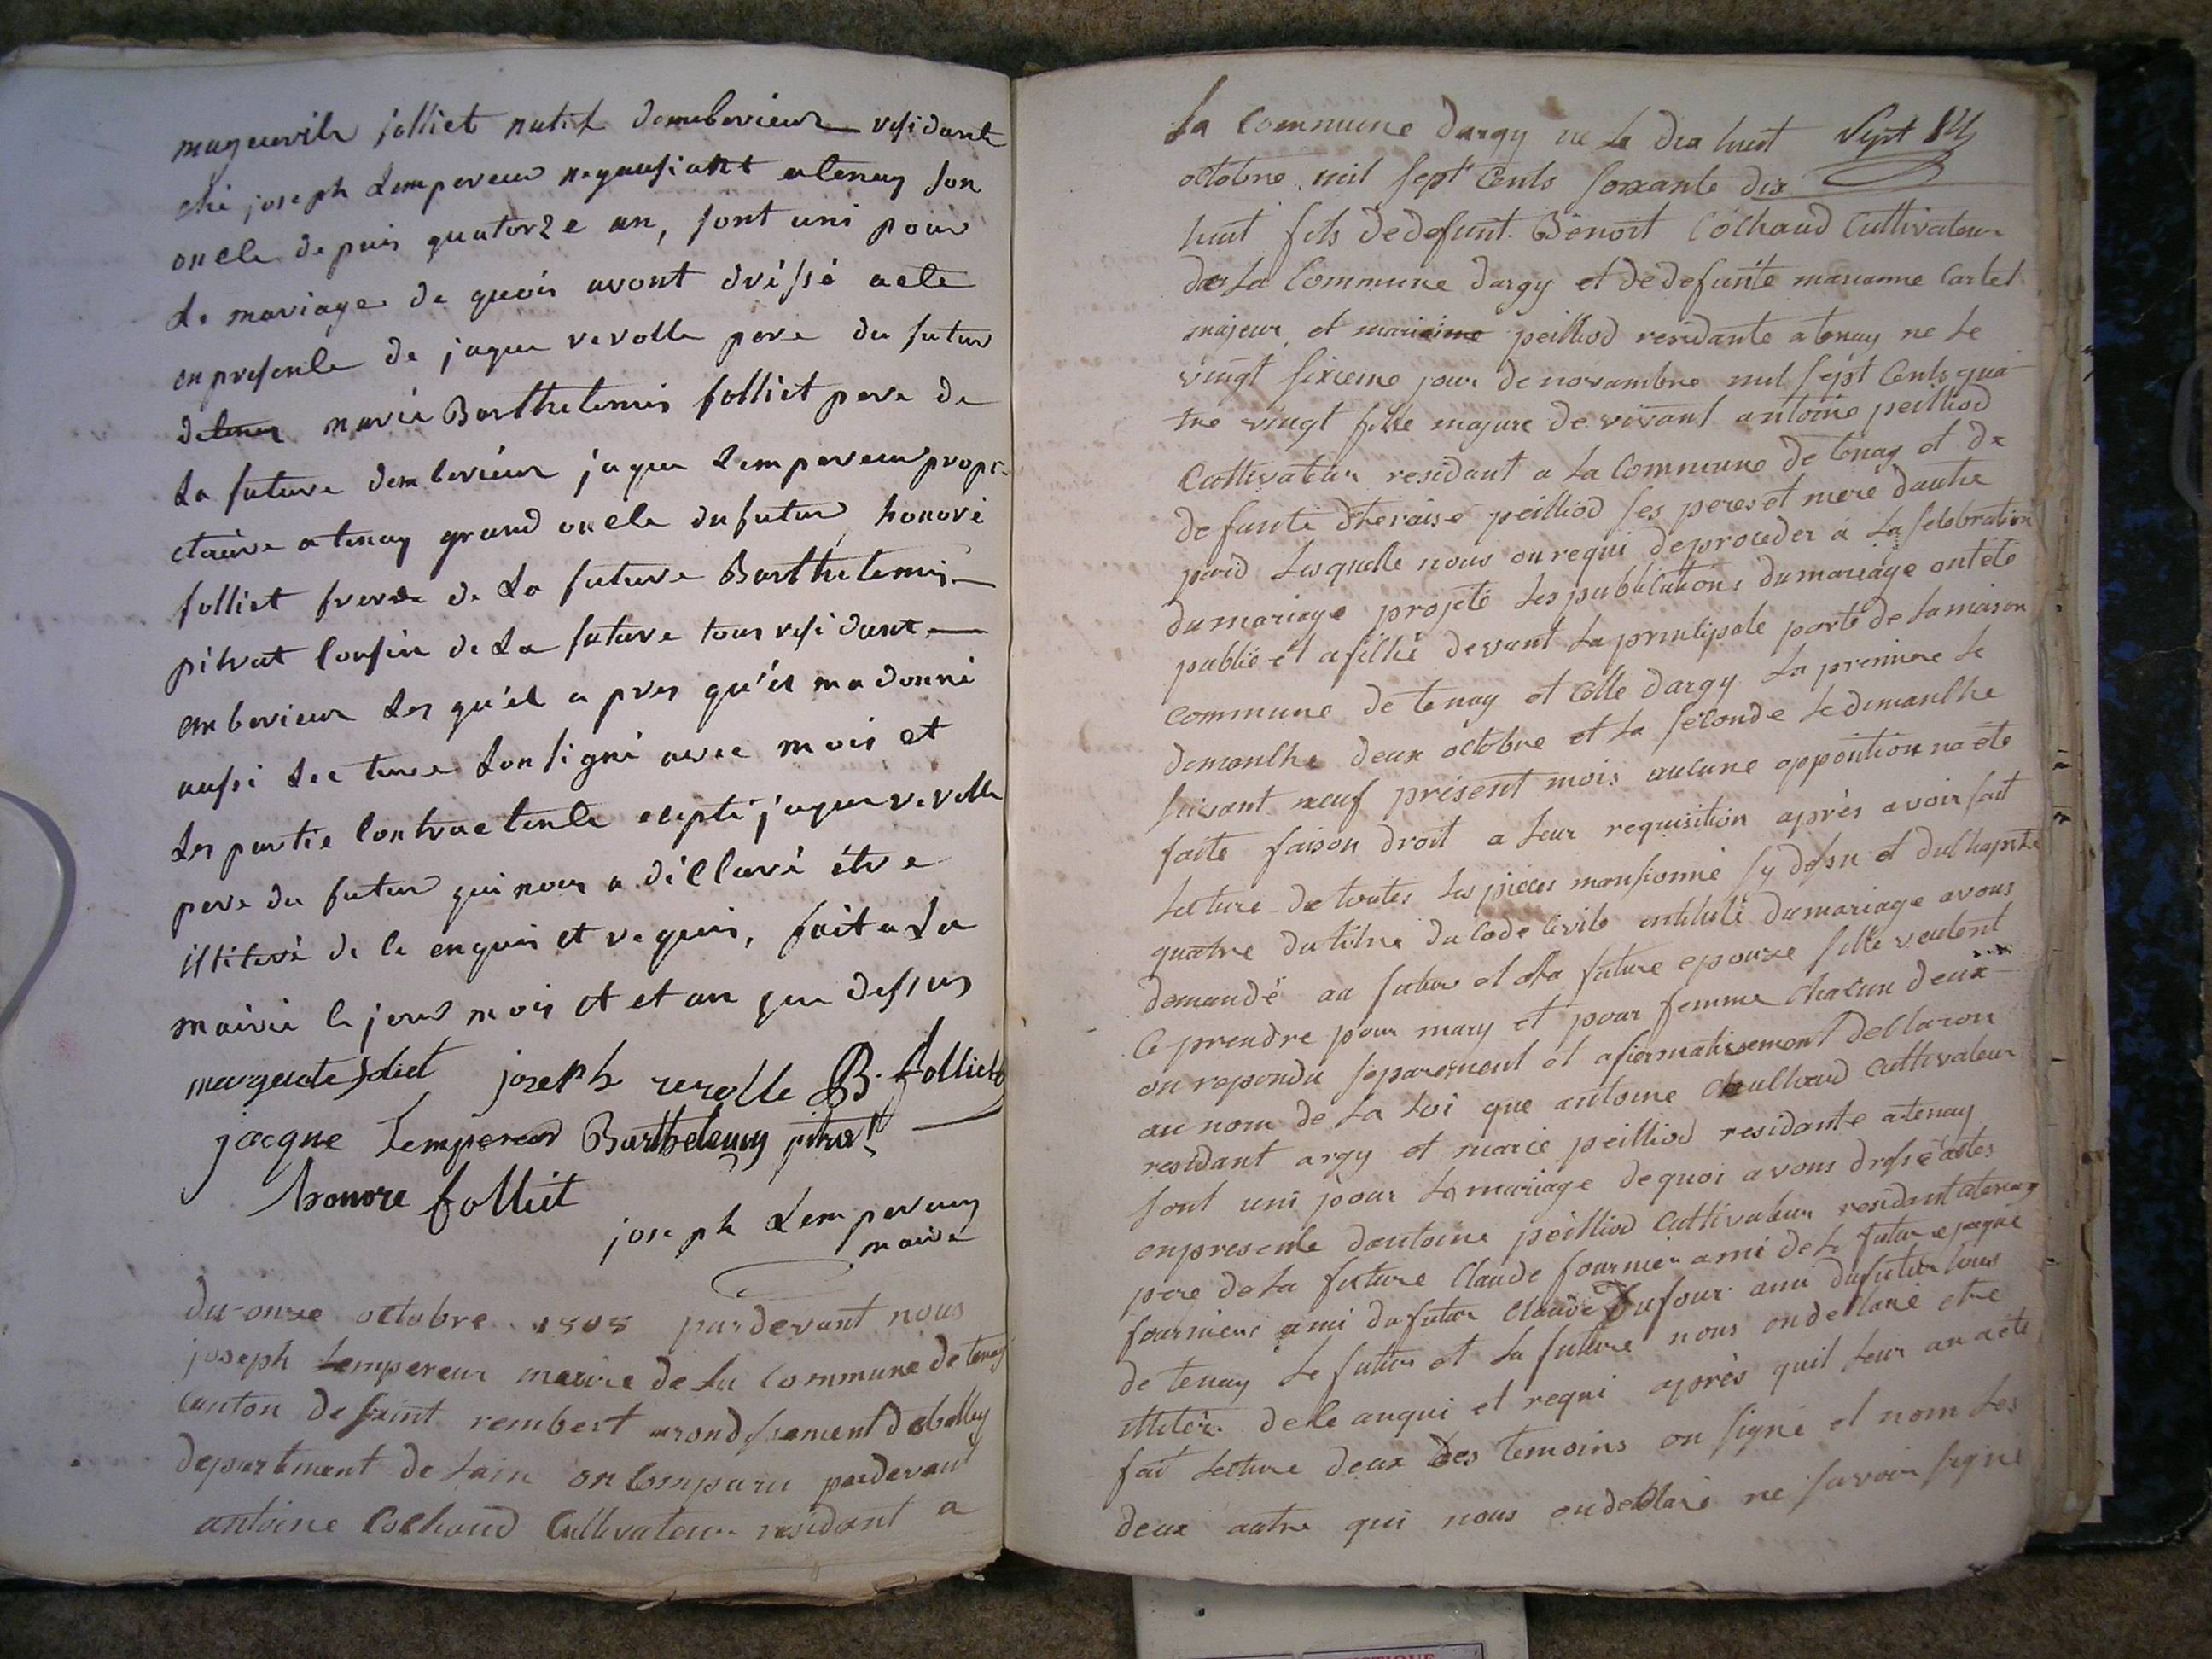 marguerite folliet natif demberieux residante
ché joseph Lempereur negausiant a tenay son
oncle depuis quatorze an, sont uni pour
Le mariage de quois avont dréssé acte
en presence de jaque revolle pere du futur
marié Barthelemis folliet pere de
La future demberieux jaque Lempereur propi-
etaire a tenay grand oncle du futur honoré
folliet frere de La future Barthelemis
pitrat Cousin de La future tous residant
emberieux Les qu'el a pres qu'il ma donné
aussi Lecture Lon signé avec mois et
Les partie Contractente ecepté jaque revolle
pere du futur qui nour a déClaré étre
illiteré de ce enquis et requis, fait a La
mairie le jour mois et et an que dessus
marguerite foliet joseph revolle B. folliet
jacque Lempereur Barthelemy pitrat
honore folliet
joseph Lempereur
maire
du onze octobre 1808 pardevant nous
joseph Lempereur maire de La Commune de tenay
Canton de saint rembert arondissement de belley
departement de Lain on Comparu pardevant
antoine Cochaud Cultivateur residant a
La Commune dargy né Le dix huit Sept
octobre mil sept Cents soixante dix
huit fils de defunt Benoit Cochaud Cultivateur
de La Commune dargy et de defunte marianne Cartet
majeur, et marie peilliod residante a tenay ne Le
vingt sixieme jour de novambre mil sept Cents qua
tre vingt fille majure de vivant antoine peilliod
Cultivateur residant a La Commune de tenay et de
defunte theraise peilliod ses peres et mere dautre
pard Lesquelle nous on requi deproceder a La selebration
du mariage projeté Les publications du mariage ont été
publié et afiché devant La principale porte de La maison
commune de tenay et Celle dargy La premiere Le
demanche deux octobre et La seconde Le demanche
suivant neuf présent mois aucune oppoition na été
faite faison droit a Leur requisition après avoir fait
Lecture de toutes Les pieces mansionné sy desu et du Chapitre
quatre du titre du Code Civile entitulé du mariage avons
demandé au futur et a La future epouxe sille veulent
Ce prendre pour mary et pour femme Chacun deux
on repondu séparement et afiermativement declaron
au nom de La Loi que antoine Cauchaud Cultivateur
residant argy et marie peilliod residante a tenay
sont uni pour Le mariage de quoi avons dressé actes
en presence dantoine peilliod Cultivateur residant a tenay
pere de La future Claude fournier ami de Le futur ejaque
fournier ami du futur Claude Dufour ami du futur tous
de tenay Le futur et La future nous on declaré etre
illitér. de ce anqui et requi après quil Leur an a été
fait Lecture deux Des temoins on signé et nom Les
deux autre qui nous on declaré ne savoir signe